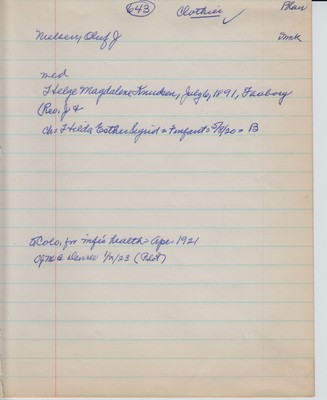 643 Clothier ✓ Blair
Nielsen, Oluf J Dmk
med
Helge Magdalene Knudsen, July 6, 1891, Faaborg
(Rev. J &
ch: Hilda Esther Sigrid = Infant = 5/9/20 = B
to Colo. for mfs health = Apr 1921
C of M. B. Denver 1/11/23 (Rest)